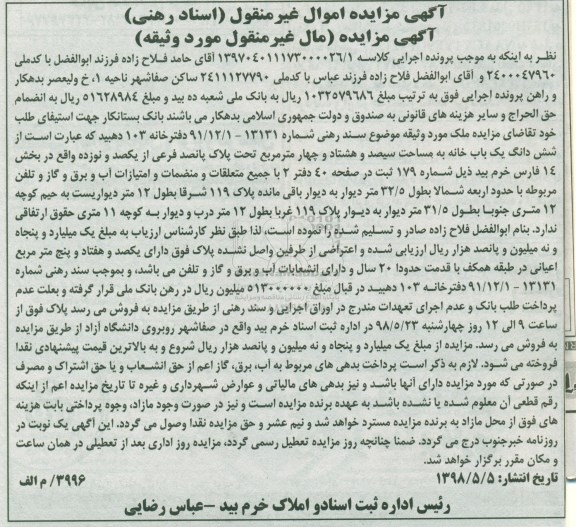 آگهی مزایده اموال غیرمنقول (اسناد رهنی)
آگهی مزایده (مال غیرمنقول مورد وثیقه)
نظر به اینکه به موجب پرونده اجرایی کلاسه ۱۳۹۷۰۴۰۱۱۱۷۳۰۰۰۰۲۶/۱ آقای حامد فلاح زاده فرزند ابوالفضل با کدملی
۲۴۰۰۰۴۷۹۶۰ و آقای ابوالفضل فلاح زاده فرزند عباس با کدملی ۲۴۱۱۱۲۷۷۹۰ ساکن صفاشهر ناحیه ۱، خ ولیعصر بدهکار
و راهن پرونده اجرایی فوق به ترتیب مبلغ ۱۰۳۲۵۷۹۶۸۶ ریال به بانک ملی شعبه ده بید و مبلغ ۵۱۶۲۸۹۸۴ ریال به انضمام
حق الحراج و سایر هزینه های قانونی به صندوق و دولت جمهوری اسلامی بدهکار می باشند بانک بستانکار جهت استیفای طلب
خود تقاضای مزایده ملک مورد وثیقه موضوع سند رهنی شماره ۱۳۱۳۱ - ۹۱/۱۲/۱ دفترخانه ۱۰۳ دهبید که عبارت است از
شش دانگ یک باب خانه به مساحت سیصد و هشتاد و چهار مترمربع تحت پلاک پانصد فرعی از یکصد و نوزده واقع در بخش
۱۴ فارس خرم بید ذیل شماره ۱۷۹ ثبت در صفحه ۴۰ دفتر ۲ با جمیع متعلقات و منضمات و امتیازات آب و برق و گاز و تلفن
مربوطه با حدود اربعه شمالا بطول ۳۲/۵ متر دیوار به دیوار باقی مانده پلاک ۱۱۹ شرقا بطول ۱۲ متر دیواریست به حیم کوچه
۱۲ متری جنوبا بطول ۳۱/۵ متر دیوار به دیوار پلاک ۱۱۹ غربا بطول ۱۲ متر درب و دیوار به کوچه ۱۱ متری حقوق ارتفاقی
ندارد. بنام ابوالفضل فلاح زاده صادر و تسلیم شده را نموده است، لذا طبق نظر کارشناس ارزیاب به مبلغ یک میلیارد و پنجاه
و نه میلیون و پانصد هزار ریال ارزیابی شده و اعتراضی از طرفین واصل نشده پلاک فوق دارای یکصد و هفتاد و پنج متر مربع
اعیانی در طبقه همکف با قدمت حدودا ۲۰ سال و دارای انشعابات آب و برق و گاز و تلفن می باشد، و بموجب سند رهنی شماره
۱۳۱۳۱ - ۹۱/۱۲/۱ دفترخانه ۱۰۳ دهبید در قبال مبلغ ۵۱۳۰۰۰۰۰۰ میلیون ریال در رهن بانک ملی قرار گرفته و بعلت عدم
پرداخت طلب بانک و عدم اجرای تعهدات مندرج در اوراق اجرایی و سند رهنی از طریق مزایده به فروش می رسد پلاک فوق از
ساعت ۹ الی ۱۲ روز چهارشنبه ۹۸/۵/۲۳ در اداره ثبت اسناد خرم بید واقع در صفاشهر روبروی دانشگاه آزاد از طریق مزایده
به فروش می رسد. مزایده از مبلغ یک میلیارد و پنجاه و نه میلیون و پانصد هزار ریال شروع و به بالاترین قیمت پیشنهادی نقدا
فروخته می شود. لازم به ذکر است پرداخت بدهی های مربوط به آب، برق، گاز اعم از حق انشعاب و یا حق اشتراک و مصرف
در صورتی که مورد مزایده دارای آنها باشد و نیز بدهی های مالیاتی و عوارض شهرداری و غیره تا تاریخ مزایده اعم از اینکه
رقم قطعی آن معلوم شده یا نشده باشد به عهده برنده مزایده است و نیز در صورت وجود مازاد، وجوه پرداختی بابت هزینه
های فوق از محل مازاد به برنده مزایده مسترد خواهد شد و نیم عشر و حق مزایده نقدا وصول می گردد. این آگهی یک نوبت در
روزنامه خبرجنوب درج می گردد. ضمنا چنانچه روز مزایده تعطیل رسمی گردد، مزایده روز اداری بعد از تعطیلی در همان ساعت
و مکان مقرر برگزار خواهد شد.
تاریخ انتشار: ۱۳۹۸/۵/۵
۳۹۹۶/ م الف
رئیس اداره ثبت اسنادو املاک خرم بید -عباس رضایی